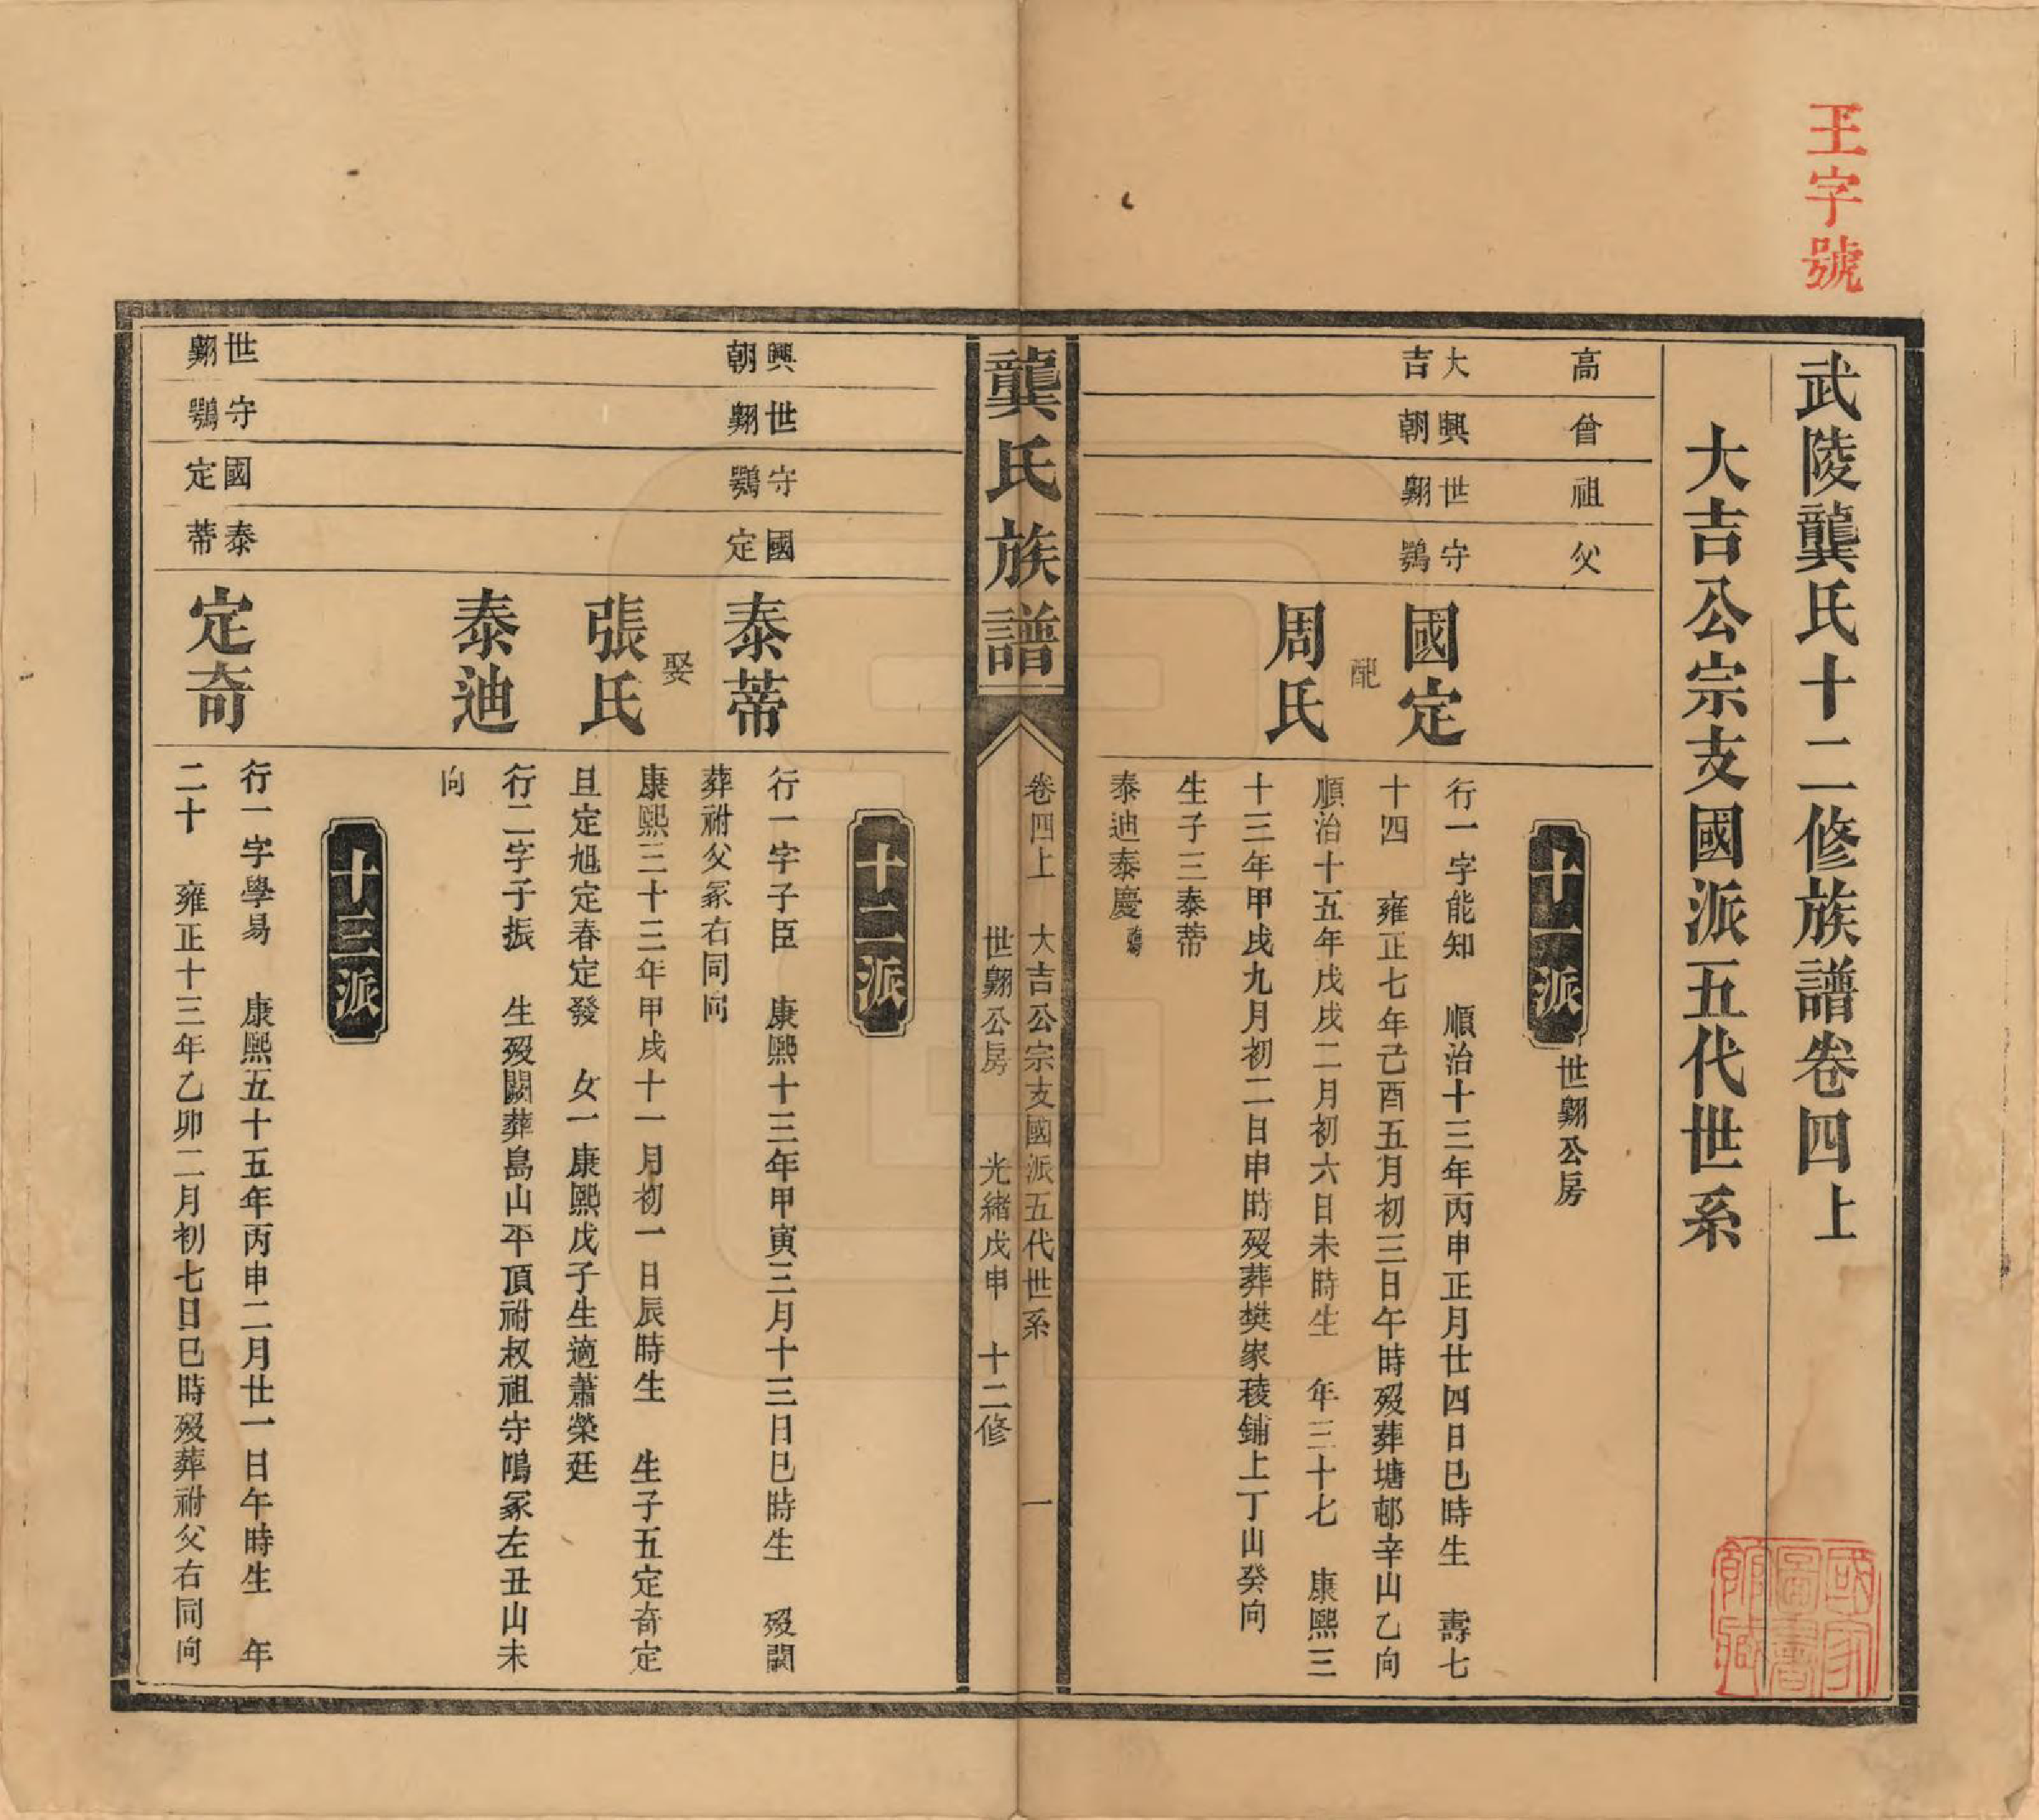 王字號
武陵龔氏十二修族譜卷四上
大吉公宗支國派五代世系
高
曾
祖
父
十一派
世翺公房
大吉
興朝
世翺
守鶚
國定
行一字能知 順治十三年丙申正月廿四日巳時生 壽七
十四 雍正七年己酉五月初三日午時歿葬塘邨辛山乙向
配
周氏
順治十五年戊戌二月初六日未時生 年三十七 康熙三
十三年甲戌九月初二日申時歿葬樊家稜鋪上丁山癸向
生子三泰蒂
泰迪泰慶
龔氏族譜
卷四上 大吉公宗支國派五代世系 一
世翺公房 光緒戊申 十二修
十二派
興朝
世翺
守鶚
國定
泰蒂
行一字子臣 康熙十三年甲寅三月十三日巳時生 歿闕
葬祔父冢右同向
娶
張氏
康熙三十三年甲戌十一月初一日辰時生 生子五定奇定
旦定旭定春定發 女一康熙戊子生適蕭榮廷
泰迪
行二字子振 生歿闕葬島山平頂祔叔祖守鳴冢左丑山未
向
十三派
世翺
守鶚
國定
泰蒂
定奇
行一字學易 康熙五十五年丙申二月廿一日午時生 年
二十 雍正十三年乙卯二月初七日巳時歿葬祔父右同向
國家圖書館藏